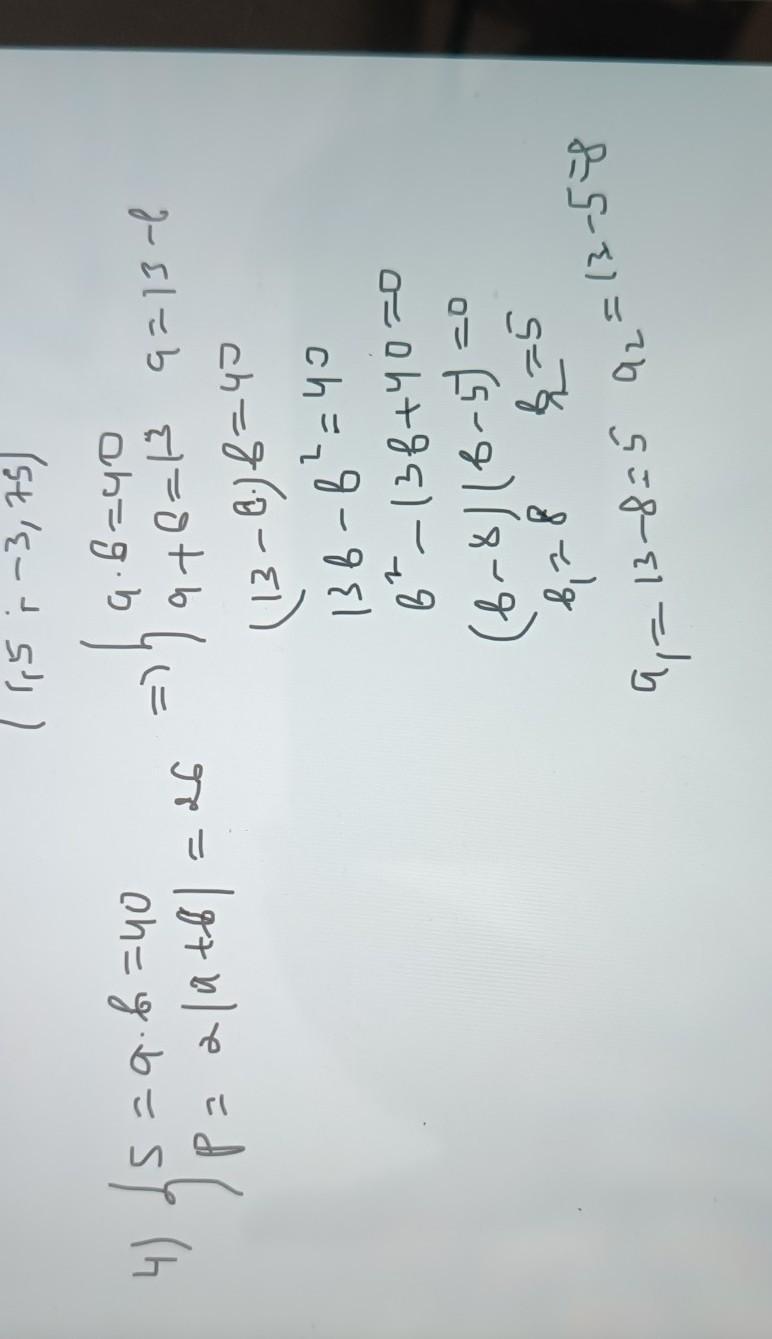 (1,5 ; -3,75)
4) { S = a·b = 40 => { a·b = 40
P = 2(a+b) = 26 a+b=13 a=13-b
(13-b)b=40
13b-b²=40
b²-13b+40=0
(b-8)(b-5)=0
b₁=8 b₂=5
a₁=13-8=5 a₂=13-5=8